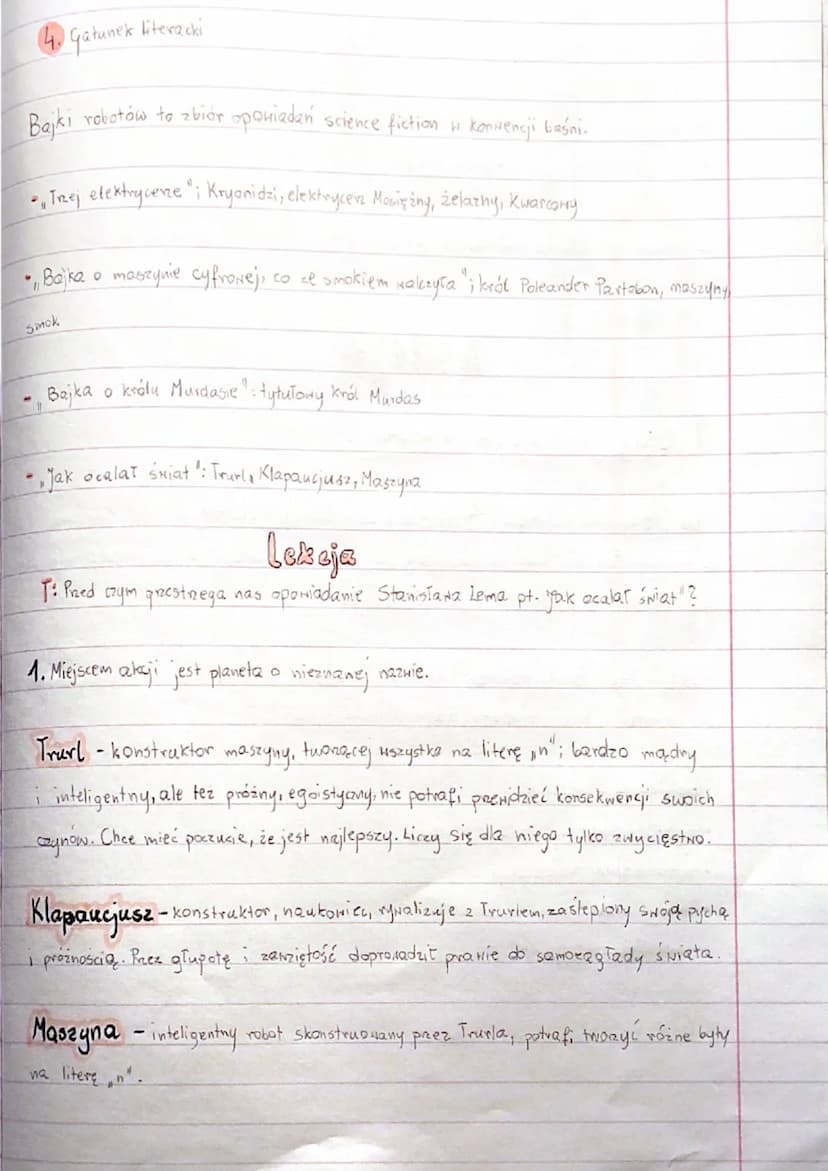 4. Gatunek literacki
Bajki robotów to zbiór opowiadań science fiction w konwencji baśni.
- „Trzej elektrycerze"; Kryonidzi, elektrycerz Mosiężny, żelazny, Kwarcowy
- „Bajka o maszynie cyfrowej, co ze smokiem walczyła"; król Poleander Partobon, maszyny,
smok
- „Bajka o królu Murdasie": tytułowy król Murdas
- „Jak ocalał świat": Trurl, Klapaucjusz, Maszyna
Lekcja
T: Przed czym przestrzega nas opowiadanie Stanisława Lema pt. "Jak ocalał świat"?
1. Miejscem akcji jest planeta o nieznanej nazwie.
Trurl - konstruktor maszyny, tworzącej wszystko na literę „n"; bardzo mądry
i inteligentny, ale też próżny, egoistyczny, nie potrafi przewidzieć konsekwencji swoich
czynów. Chce mieć poczucie, że jest najlepszy. Liczy się dla niego tylko zwycięstwo.
Klapaucjusz - konstruktor, naukowiec, rywalizuje z Trurlem, zaślepiony swoją pychą
i próżnością. Przez głupotę i zawziętość doprowadził prawie do samozagłady świata.
Maszyna - inteligentny robot skonstruowany przez Trurla, potrafi tworzyć różne byty
na literę „n".